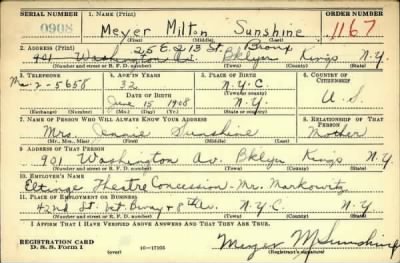 SERIAL NUMBER 1. NAME (Print) ORDER NUMBER
0908 Meyer Milton Sunshine 1167
(First) (Middle) (Last)
2. ADDRESS (Print) 25 E. 213 St. Bronx
901 Washington Av. Bklyn Kings N.Y.
(Number and street or R. F. D. number) (Town) (County) (State)
3. TELEPHONE 4. AGE IN YEARS 5. PLACE OF BIRTH 6. COUNTRY OF CITIZENSHIP
Ma-2-5658 32 N.Y.C.
DATE OF BIRTH
June 15 1908 N.Y. U.S.
(Exchange) (Number) (Mo.) (Day) (Yr.) (State or country)
7. NAME OF PERSON WHO WILL ALWAYS KNOW YOUR ADDRESS 8. RELATIONSHIP OF THAT PERSON
Mrs Jennie Sunshine Mother
(Mr., Mrs., Miss) (First) (Middle) (Last)
9. ADDRESS OF THAT PERSON
901 Washington Av. Bklyn Kings N.Y.
(Number and street or R. F. D. number) (Town) (County) (State)
10. EMPLOYER'S NAME
Eltinge Theatre Concession - Mr. Markowitz
11. PLACE OF EMPLOYMENT OR BUSINESS
42nd St. bet. Bway & 8th Av. N.Y.C. N.Y.
(Number and street or R. F. D. number) (Town) (County) (State)
I AFFIRM THAT I HAVE VERIFIED ABOVE ANSWERS AND THAT THEY ARE TRUE.
REGISTRATION CARD
D. S. S. Form 1 16-17105 Meyer M Sunshine
(Registrant's signature)